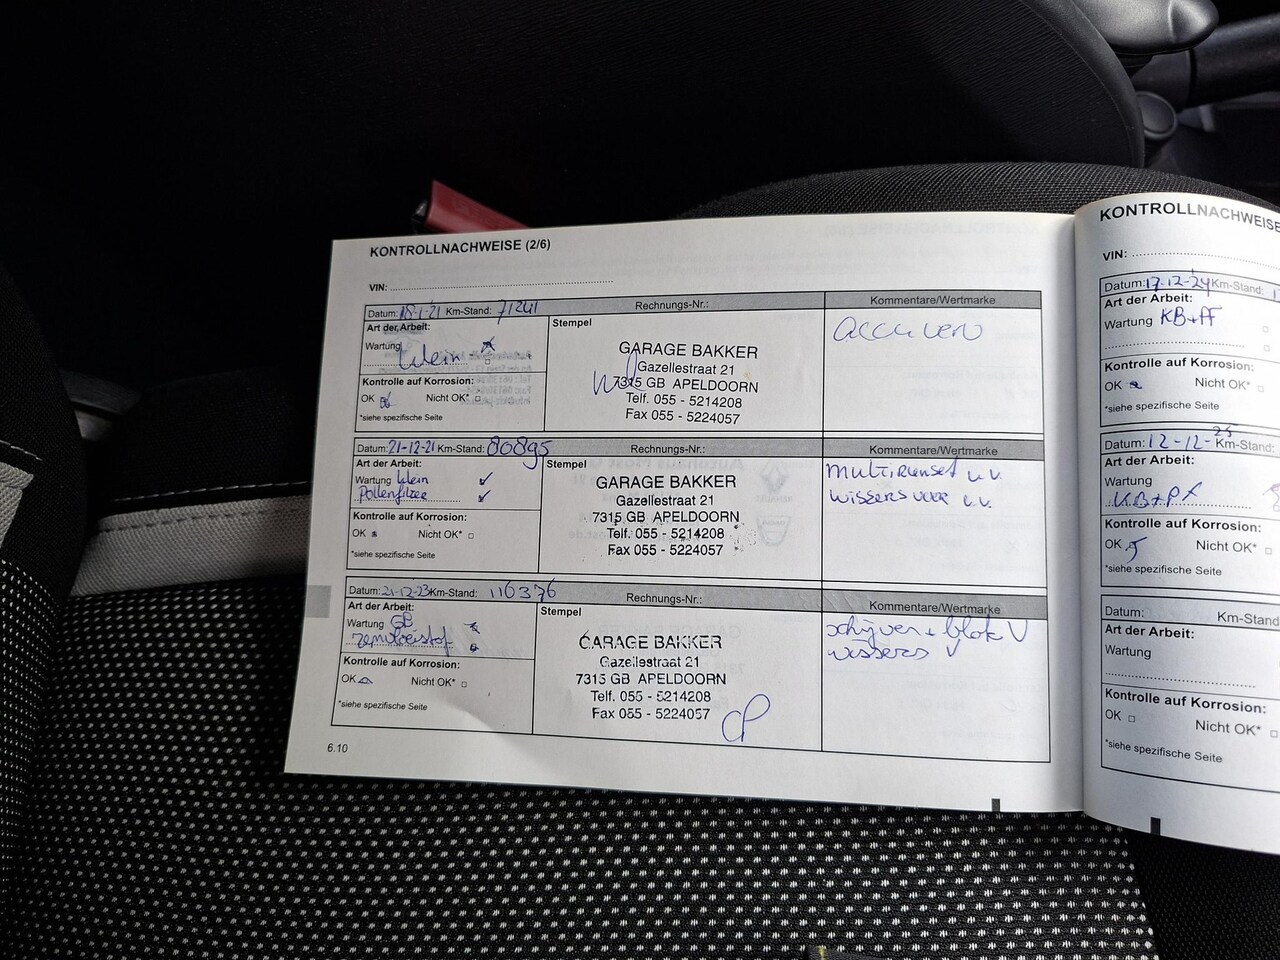 KONTROLLNACHWEISE (2/6)
VIN:
Datum: 18-1-21 Km-Stand: 71241
Rechnungs-Nr.:
Kommentare/Wertmarke
Art der Arbeit:
Wartung
klein
Kontrolle auf Korrosion:
OK Nicht OK*
*siehe spezifische Seite
Stempel
GARAGE BAKKER
Gazellestraat 21
7315 GB APELDOORN
Telf. 055 - 5214208
Fax 055 - 5224057
accu verv
Datum: 21-12-21 Km-Stand: 80895
Rechnungs-Nr.:
Kommentare/Wertmarke
Art der Arbeit:
Wartung klein
Pollenfilter
Kontrolle auf Korrosion:
OK Nicht OK*
*siehe spezifische Seite
Stempel
GARAGE BAKKER
Gazellestraat 21
7315 GB APELDOORN
Telf. 055 - 5214208
Fax 055 - 5224057
multiriemset v.v.
wissers voor v.v.
Datum: 21-12-23 Km-Stand: 116376
Rechnungs-Nr.:
Kommentare/Wertmarke
Art der Arbeit:
Wartung GB
remvloeistof
Kontrolle auf Korrosion:
OK Nicht OK*
*siehe spezifische Seite
Stempel
GARAGE BAKKER
Gazellestraat 21
7315 GB APELDOORN
Telf. 055 - 5214208
Fax 055 - 5224057
schijven + blok V
wissers V
6.10
KONTROLLNACHWEISE
VIN:
Datum: 17-12-24 Km-Stand: 1
Art der Arbeit:
Wartung KB+PF
Kontrolle auf Korrosion:
OK Nicht OK*
*siehe spezifische Seite
Datum: 12-12-25 Km-Stand:
Art der Arbeit:
Wartung
KB+PF
Kontrolle auf Korrosion:
OK Nicht OK*
*siehe spezifische Seite
Datum: Km-Stand
Art der Arbeit:
Wartung
Kontrolle auf Korrosion:
OK Nicht OK*
*siehe spezifische Seite